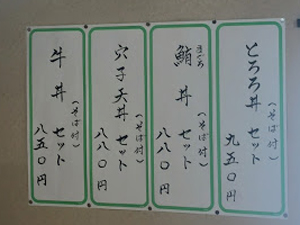 とろろ丼セット
(そば付)
九五〇円
まぐろ
鮪丼セット
(そば付)
八八〇円
穴子天丼セット
(そば付)
八八〇円
牛丼セット
(そば付)
八五〇円